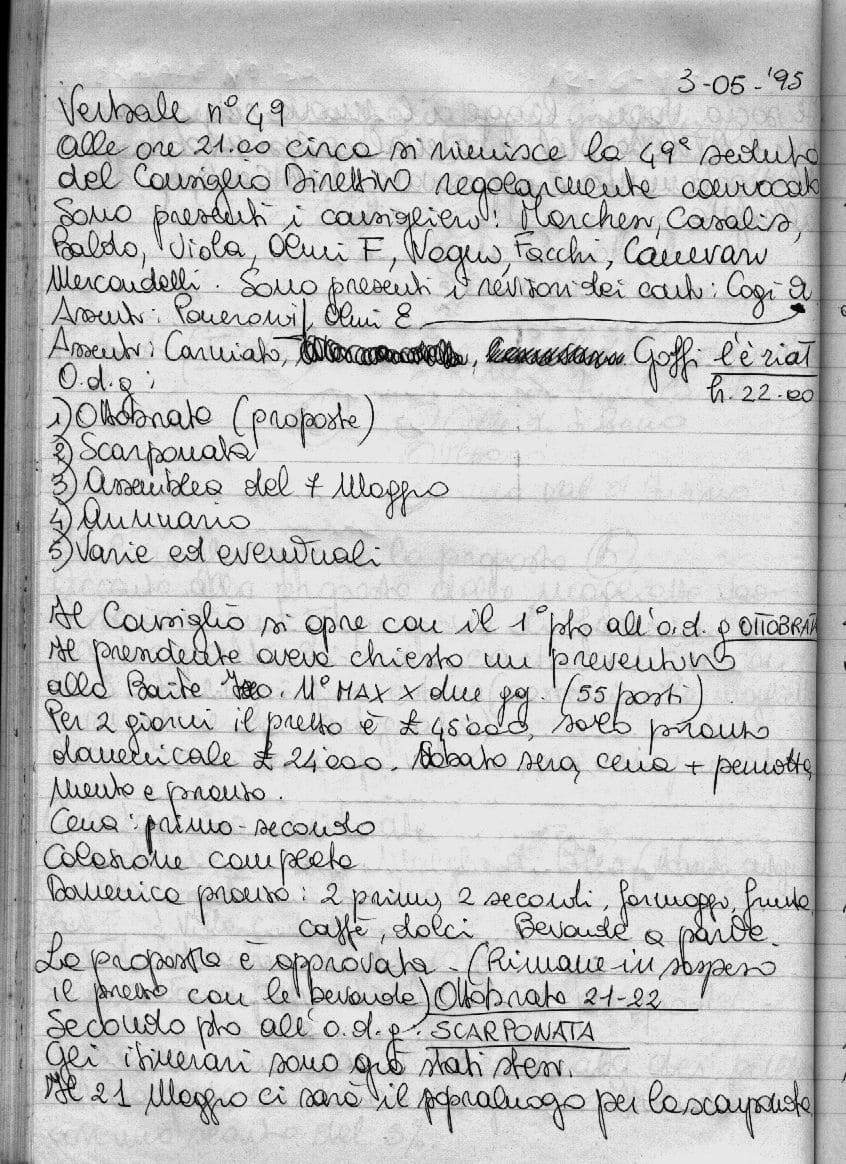 3-05-'95
Verbale n° 49
alle ore 21.00 circa si riunisce la 49ª seduta
del Consiglio Direttivo regolarmente convocato
Sono presenti i consiglieri: Marchesi, Casalis,
Baldo, Viola, Olmi F, Facchi, Canevari
Mercandelli. Sono presenti i revisori dei conti: Cogi A
Assenti: Olmi E
Assenti: Carniato, Goffi l'è riat
h. 22.00
O.d.g:
1) Ottobrata (proposte)
2) Scarponata
3) Assemblea del 7 Maggio
4) Annuario
5) Varie ed eventuali
Il Consiglio si apre con il 1° pto all'o.d.g OTTOBRATA
Il presidente aveva chiesto un preventivo
alla Baite N° MAX X due gg. (55 posti)
Per 2 giorni il prezzo è £ 45'000, solo pranzo
domenicale £ 24'000. Sabato sera, cena + pernotta
mento e pranzo.
Cena: primo-secondo
Colazione completa
Domenica pranzo: 2 primi, 2 secondi, formaggio, frutta,
caffè, dolci Bevande a parte.
La proposta è approvata. (Rimane in sospeso
il prezzo con le bevande) Ottobrata 21-22
Secondo pto all'o.d.g: SCARPONATA
Gli itinerari sono già stati stesi.
Il 21 Maggio ci sarà il sopraluogo per la scarponata